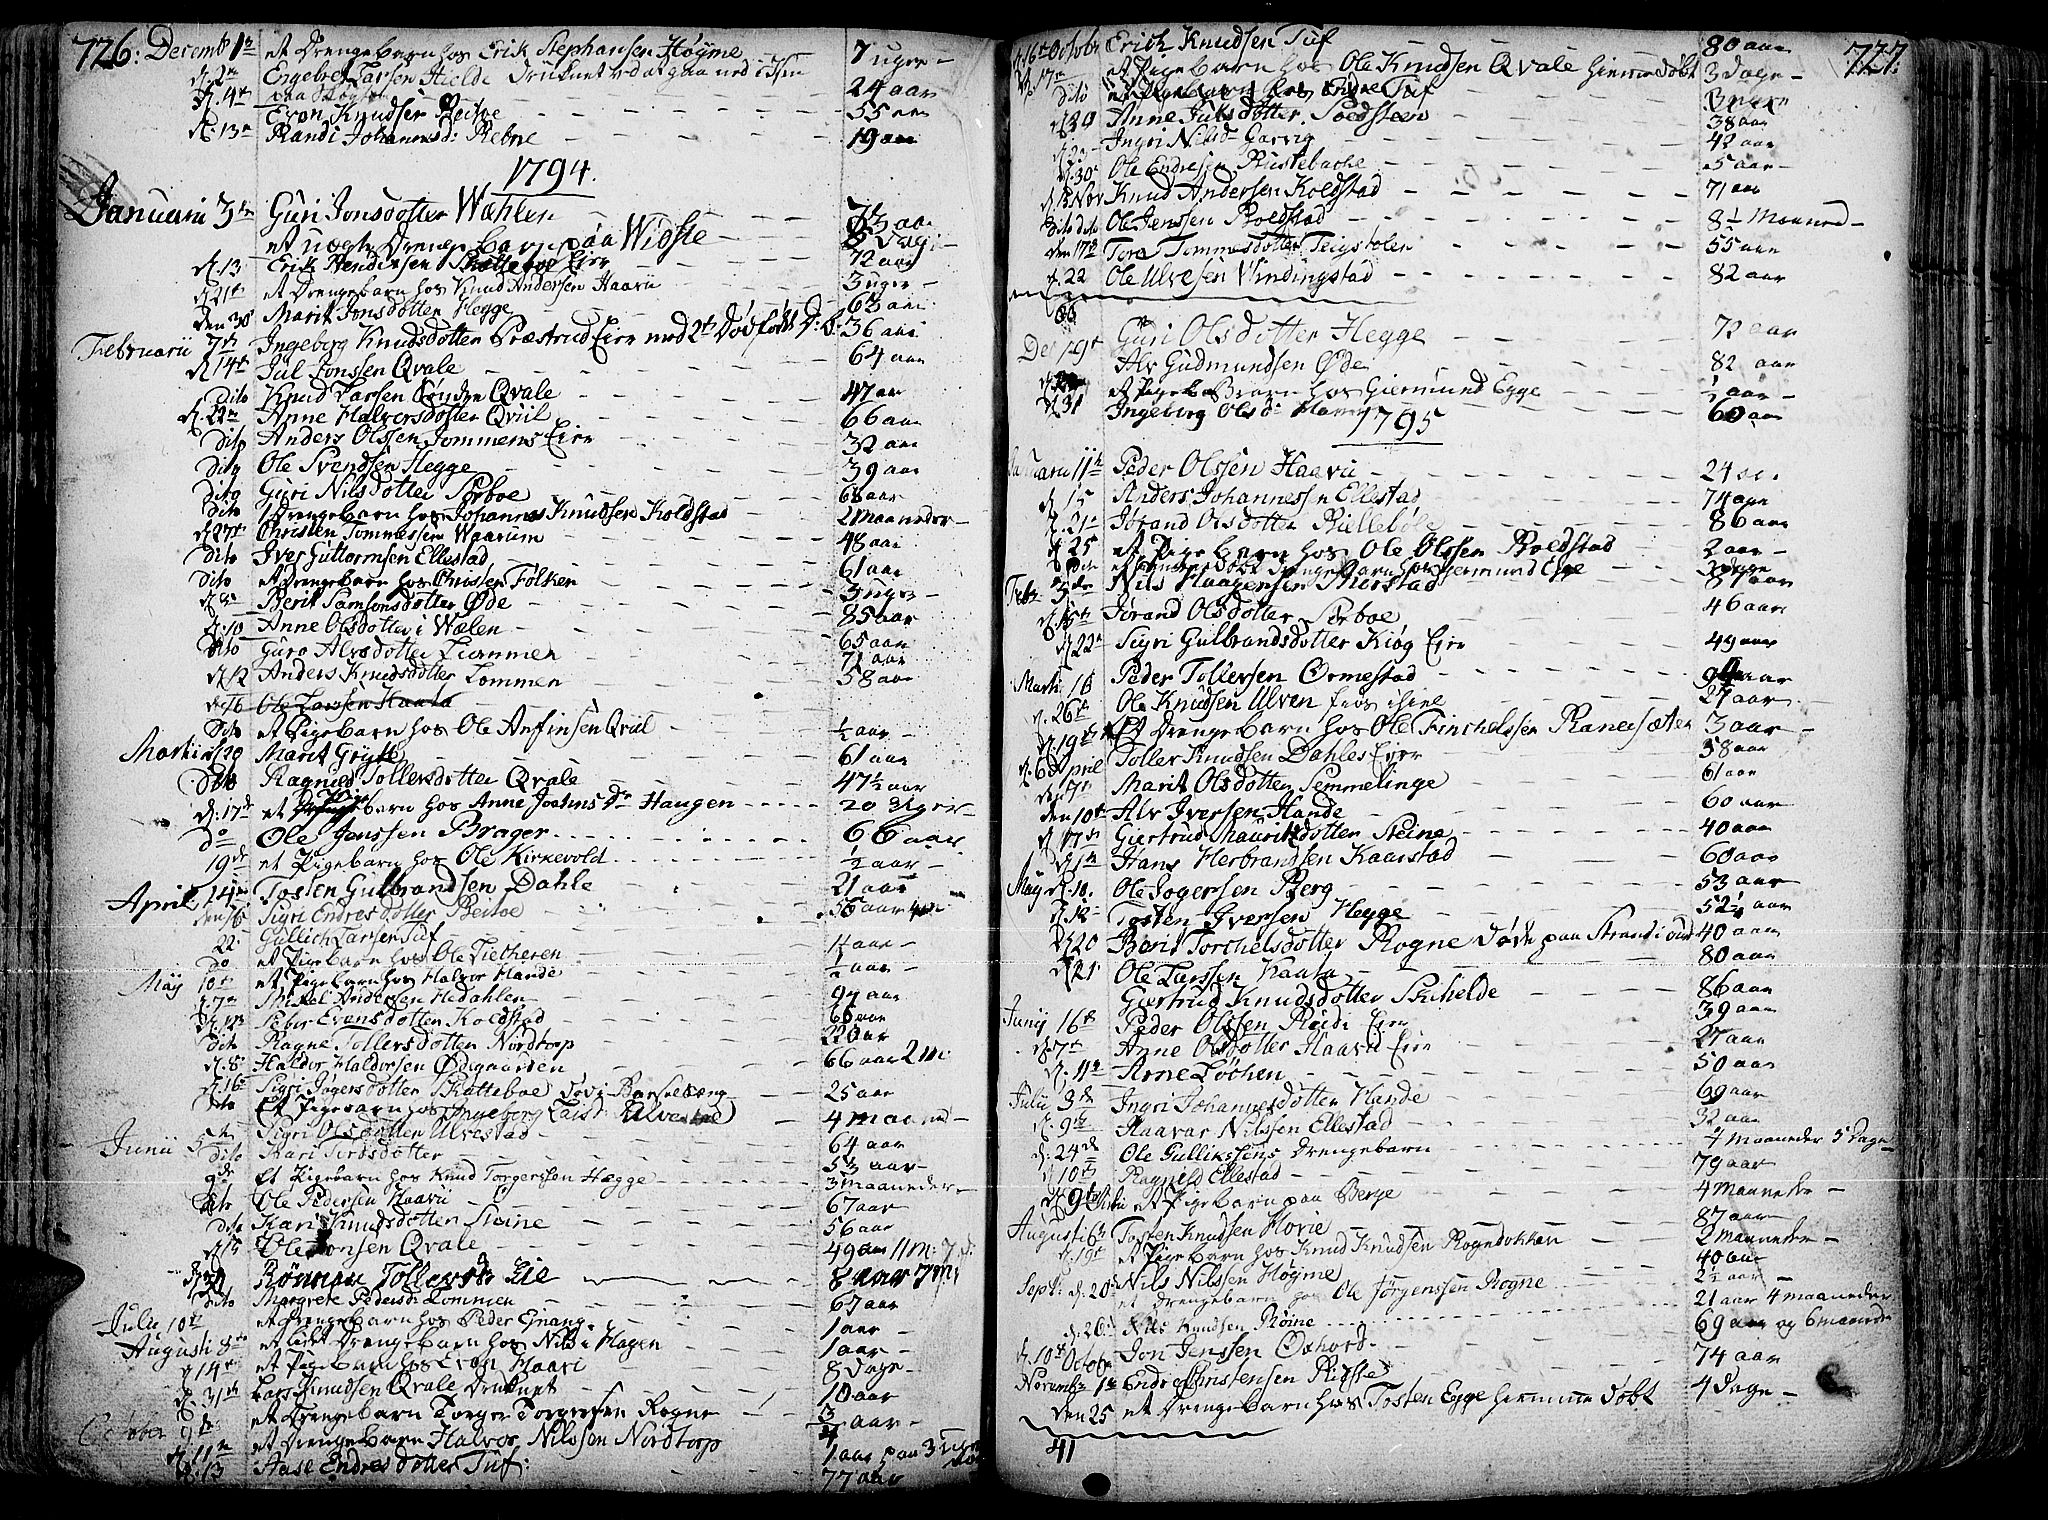 726: Decemb 1 et Drengebarn hos Erik Stephansen Høyme 7 uger
d. 2 Engebret Larsen Hielde Druknet ved at gaa ned i Isen 24 aar
d. 4 Even Knudsen Beitoe 55 aar
d. 13 Randi Johannesd: Rebne 19 aar
1794.
Januarii 3 Guri Jonsdotter Wæhlen 73 aar
et uægte Drengebarn paa Widste 8 Dage
d. 13 Erik Hendrichsen Skatteboe Eie 72 aar
d. 21 et Drengebarn hos Knud Andersen Haavii 3 uger
den 30 Marit Jonsdotter Hegge 63 aar
Februarii 7 Ingeborg Knudsdotter Præstrud Eie med 2 Dødfødte D: B: 36 aar
d 14 Jul Jonssen Qvale 64 aar
dito Knud Larsen Søndre Qvale 47 aar
d. 22 Anne Halvorsdotter Qviil 66 aar
dito Anders Olssen Jommerns Eie 32 aar
dito Ole Svendsen Hegge 39 aar
dito Guri Nilsdotter Sørboe 68 aar
dito 1 Drengebarn hos Johannes Knudsen Koldstad 2 Maaneder
d. 27 Christen Tommessen Waarum 48 aar
dito Iver Guttormsen Ellestad 61 aar
dito et Drengebarn hos Christen Følken 3 uger
d. 8 Berit Samsonsdotter Øde 85 aar
d. 10 Anne Olsdotter i Wælen 65 aar
dito Guro Alvsdotter Lommen 71 aar
d. 12 Anders Knudsdotter Lommen 58 aar
d. 16 Ole Larssen Kaata
dito et Pigebarn hos Ole Anfinsen Qviil ½ aar
Martii d 20 Marit Gryte 61 aar
dito Ragnild Tollersdotter Qvale 47½ aar
d. 17 et Pige barn hos Anne Jostens Dr Haugen 20 Uger
do Ole Jenssen Brager 66 aar
19 et Pigebarn hos Ole Kirkevold ½ aar
April 14 Tosten Gulbrandsen Dahle 21 aar
den 16 Sigri Endresdotter Beitoe 56 aar
22 Gullich Larsen Tuf 1½ aar
do et Pigebarn hos Ole Lietheren ½ aar
May 10 et Pigebarn hos Halvor Hande
d. 7 Mikel Andersen Hedahlen 97 aar
d. 12 Peder Evensdotter Koldstad 66 aar
dito Ragne Tollersdotter Nordtorp 22 aar
d. 8 Haldor Haldorsen Ødegaarden 66 aar 2 M:
d. 16 Sigri Jøgersdotter Skatteboe Død i Barselseng 25 aar
dito Et Pigebarn hos Ingeborg Larsd: Ulvestad 4 maaned
Junii 5 Sigri Olsdotter Ulvestad 64 aar
dito Kari Tordsdotter 53 aar
9 Et Pigebarn hos Knud Torgerssen Hægge 3 maaneder
dito Ole Pedersen Haavii 67 aar
dito Kari Knudsdotter Steine 56 aar
d 15 Ole Jonsen Qvale 49 aar 11 M: 7 d.
d 29 Rønnau Tollevsd: Lie 8 aar 7 M:
dito Margrete Pedersd: Lommen 67 aar
Julii 10 et Drengebarn hos Peder Gjnang 1 aar
Augusti 8 et lidet Drengebarn hos Nils i Hagen 1 aar
d 14 et Pigebarn hos Even Haari 8 Dage
d. 31 Lars Knudsen Qvale Druknet 10 aar
October 9 et Drengebarn Torger Torgersen Rogne ¾ aar
d. 11 et Drengebarn Halvor Nilssen Nordtorp 1 aar paa 3 Uger
d. 13 Aase Endresdotter Tuf 77 aar
727.
d. 16 Octobr Erich Knudsen Tuf 80 aar
d. 17 et Pigebarn hos Ole Knudsen Qvale hiemmedøbt 3 Dage
dito et Pigebarn hos Endre Tuf
d. 20 Anne Julsdotter Soedsteen 38 aar
Ingri Nilsd: Garvig 42 aar
d. 30 Ole Endresen Rustebacke 5 aar
Nov Knud Andersen Koldstad 71 aar
dito dito Ole Jenssen Boldstad 8½ Maaned
den 17 Tora Tommesdotter Teigstolen 55 aar
d. 22 Ole Ulvesen Windingstad 82 aar
66
Guri Olsdotter Hegge 72 aar
De 19 Alv Gudmundsen Øde 82 aar
et Pige Barn hos Giermund Egge ½ aar
d 31 Ingeborg Olsd: 60 aar
1795
Januarii 11 Peder Olssen Haavii 24
d. 15 Anders Johannessen Ellestad 74 aar
d. 21 Jørand Olsdotter Riellebøle 86 aar
d. 25 et Pigebarn hos Ole Olssen Boldstad 2 aar
dito et hiemmedøbt Drengebarn hos Giermund Egge
Febr 5 Nils Haagensen Stierstad 87 aar
d. 15 Jørand Olsdotter Sørboe 46 aar
d 22 Sigri Gulbrandsdotter Kiøg Eie 49 aar
Martii 16 Peder Tollersen Ormestad aar
d. 26 Ole Knudsen Ulven frøs ihiel 27 aar
d. 19 Et Drengebarn hos Ole Finchelssen Raneisæter 3 aar
d. 6 April Toller Knudsen Dahles Eie 58 aar
d. 7 Marit Olsdotter Semmelinge 61 aar
den 10 Alv Iversen Hande 60 aar
d. 17 Giertrud Mauritzdotter Steine 40 aar
d. 1 Hans Herbrandsen Kaarstad 60 aar
May d. 10. Ole Jogersen Berg 53 aar
d. 12 Tosten Iversen Hegge 52½ aar
d. 20 Berit Torchelsdotter Rogne Døde paa Strand i ourd 40 aar
d. 21 Ole Larssen Kaata 80 aar
Giertrud Knudsdotter Skihelde 86 aar
Junij 16 Peder Olssen Røidi Eie 39 aar
d. 7 Anne Olsdotter Haavii Eie 27 aar
d. 11 Arne Løchen 50 aar
Julii 3 Ingri Johannesdotter Hande 69 aar
d. 9 Haavar Nilssen Ellestad 32 aar
d. 24 Ole Gullikssens Drengebarn 4 maaneder 5 Dage
d 10 Ragnild Ellestad 79 aar
d. 9 et Pigebarn paa Berge 4 Maaneder
Augusti 6 Tosten Knudsen Hovie 87 aar
d. 19 et Pigebarn hos Knud Knudsen Rognedokken 2 Maaneder
Sept: d. 20 Nils Nilssen Høyme 40 aar
et Drengebarn hos Ole Jørgenssen Rogne 2½ aar
d. 20. Nils Knudsen Røine 21 aar 4 maaneder
69 aar og 6 maaneder
d. 10 Octobr Jon Jenssen Oxhovd 74 aar
Novembr 1 Endre Christensen Ridste
den 25 et Drengebarn hos Tosten Egge hiemme døbt 4 Dage
41